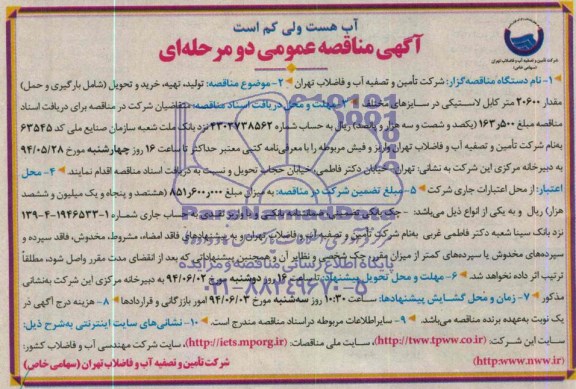 آب هست ولی کم است
آگهی مناقصه عمومی دو مرحله‌ای
شرکت تأمین و تصفیه آب و فاضلاب تهران
(سهامی خاص)
۱- نام دستگاه مناقصه‌گزار: شرکت تأمین و تصفیه آب و فاضلاب تهران ۲- موضوع مناقصه: تولید، تهیه، خرید و تحویل (شامل بارگیری و حمل)
مقدار ۲۰۶۰۰ متر کابل لاستیکی در سایزهای مختلف ۳- مهلت و محل دریافت اسناد مناقصه: متقاضیان شرکت در مناقصه برای دریافت اسناد
مناقصه مبلغ ۱۶۳٫۵۰۰ (یکصد و شصت و سه هزار و پانصد) ریال به حساب شماره ۴۳۰۷۳۸۵۶۲ نزد بانک ملت شعبه سازمان صنایع ملی کد ۶۳۵۴۵
به‌نام شرکت تأمین و تصفیه آب و فاضلاب تهران واریز و فیش مربوطه را با معرفی‌نامه کتبی معتبر حداکثر تا ساعت ۱۶ روز چهارشنبه مورخ ۹۴/۰۵/۲۸
به دبیرخانه مرکزی این شرکت به نشانی: تهران- خیابان دکتر فاطمی- خیابان حجاب تحویل و نسبت به دریافت اسناد مناقصه اقدام نمایند ۴- محل
اعتبار: از محل اعتبارات جاری شرکت ۵- مبلغ تضمین شرکت در مناقصه: به میزان مبلغ ۸۵۱٫۶۰۰٫۰۰۰ (هشتصد و پنجاه و یک میلیون و ششصد
هزار) ریال و به یکی از انواع ذیل می‌باشد - چک بانکی تضمینی، ضمانتنامه بانکی و یا واریز نقدی به حساب جاری شماره ۱۳۹-۴-۱۹۴۶۵۳۳-۱
نزد بانک سینا شعبه دکتر فاطمی غربی به‌نام شرکت تأمین و تصفیه آب و فاضلاب تهران و به پیشنهادهای فاقد امضاء، مشروط، مخدوش، فاقد سپرده و
سپرده‌های مخدوش یا سپرده‌های کمتر از میزان مقرر، چک شخصی و نظایر آن و همچنین پیشنهاداتی که بعد از انقضای مدت مقرر واصل شود، مطلقاً
ترتیب اثر داده نخواهد شد. ۶- مهلت و محل تحویل پیشنهاد: تا ساعت ۱۶ روز دوشنبه مورخ ۹۴/۰۶/۰۲ به دبیرخانه مرکزی این شرکت به‌نشانی
مذکور ۷- زمان و محل گشایش پیشنهادها: ساعت ۱۰:۳۰ روز سه‌شنبه مورخ ۹۴/۰۶/۰۳ امور بازرگانی و قراردادها ۸- هزینه درج آگهی در
یک نوبت به‌عهده برنده مناقصه می‌باشد. ۹- سایر اطلاعات مربوطه در اسناد مناقصه مندرج است. ۱۰- نشانی‌های سایت اینترنتی به‌شرح ذیل:
سایت این شرکت: (http://tww.tpww.co.ir)، سایت ملی مناقصات: (http://iets.mporg.ir)، سایت شرکت مهندسی آب و فاضلاب کشور:
(http:www.nww.ir)
شرکت تأمین و تصفیه آب و فاضلاب تهران (سهامی خاص)
پایگاه اطلاع رسانی مناقصه و مزایده
۰۲۱-۸۸۳۴۹۶۷۰-۵